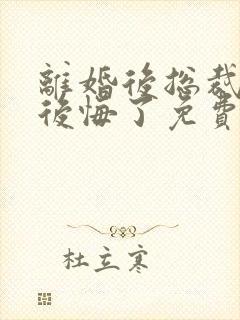 離婚後總裁
後悔了免費
杜立寒